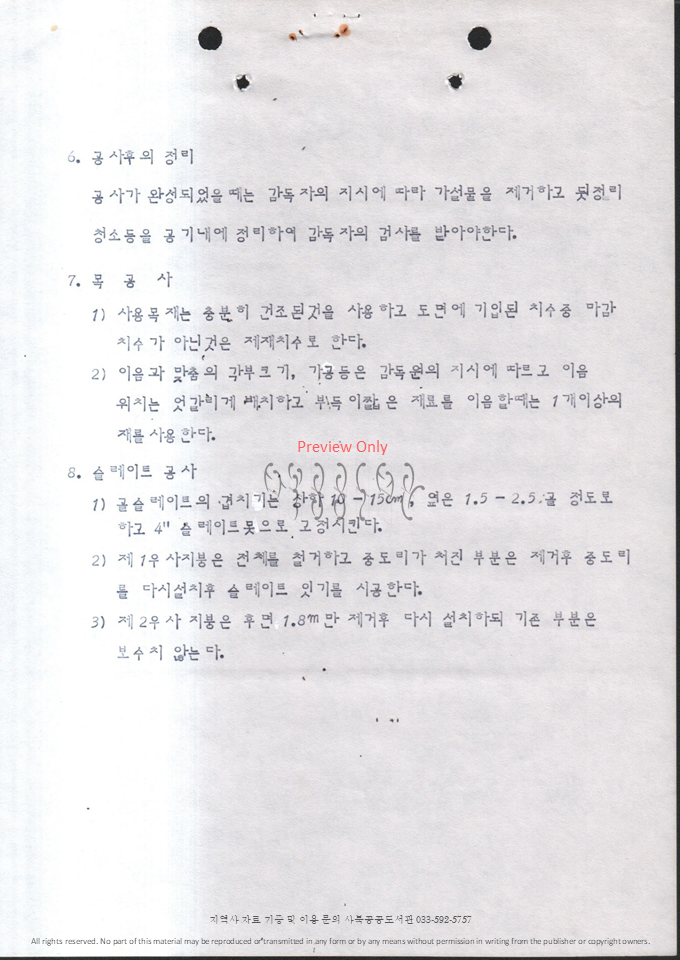 6. 공사후의 정리
공사가 완성되었을때는 감독자의 지시에 따라 가설물을 제거하고 뒷정리
청소등을 공기내에 정리하여 감독자의 검사를 받아야한다.
7. 목 공 사
1) 사용목재는 충분히 건조된것을 사용하고 도면에 기입된 치수중 마감
치수가 아닌것은 제재치수로 한다.
2) 이음과 맞춤의 각부크기, 가공등은 감독원의 지시에 따르고 이음
위치는 엇갈리게 배치하고 부득이짧은 재료를 이음할때는 1개이상의
재를사용한다.
Preview Only
8. 슬레이트 공사
1) 골슬레이트의 겹치기는 상하 10 - 15cm, 옆은 1.5 - 2.5.골 정도로
하고 4" 슬레이트못으로 고정시킨다.
2) 제1우사지붕은 전체를 철거하고 중도리가 처진 부분은 제거후 중도리
를 다시설치후 슬레이트 잇기를 시공한다.
3) 제2우사 지붕은 후면 1.8m만 제거후 다시 설치하되 기존 부분은
보수치 않는다.
지역사 자료 기증 및 이용 문의 사북공공도서관 033-592-5757
All rights reserved. No part of this material may be reproduced or transmitted in any form or by any means without permission in writing from the publisher or copyright owners.